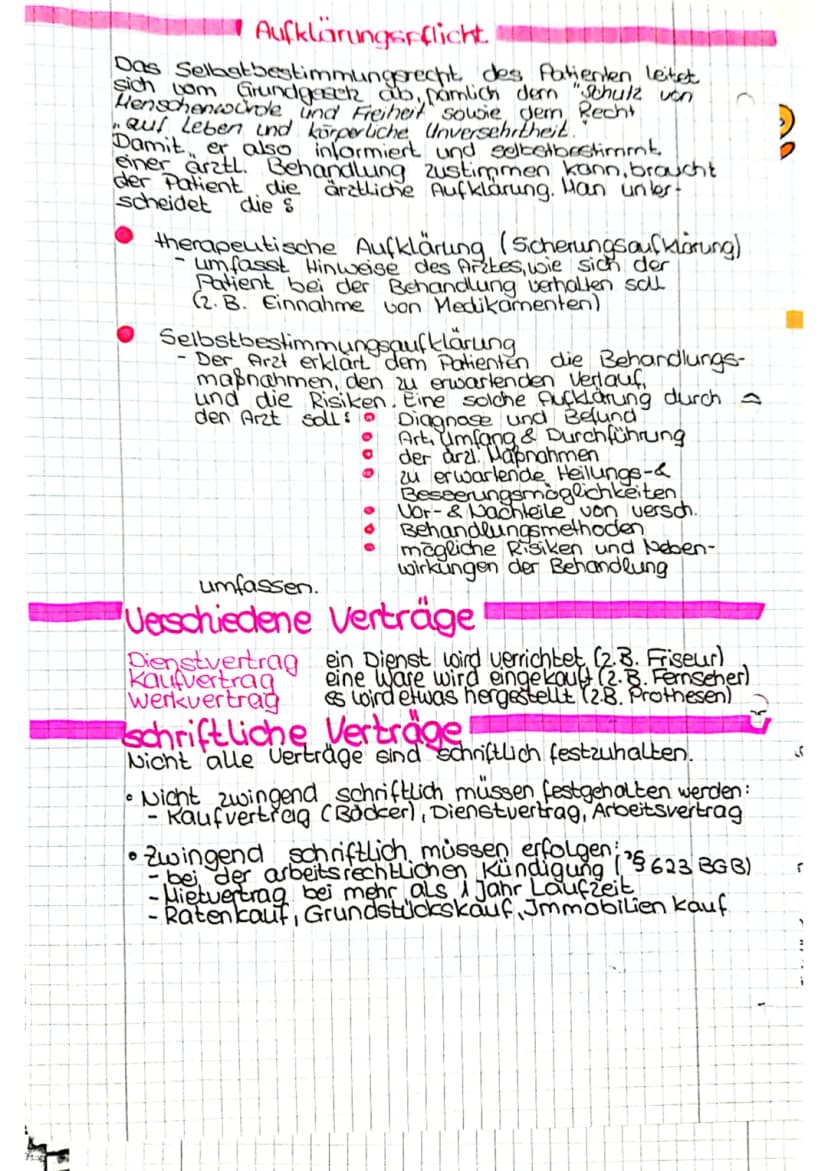 Aufklärungspflicht
Das Selbstbestimmungsrecht des Patienten leitet
sich vom Grundgesetz ab, nämlich dem "Schutz von
Menschenwürde und Freiheit sowie dem Recht
„auf Leben und körperliche Unversehrtheit."
Damit er also informiert und selbstbestimmt
einer ärztl. Behandlung zustimmen kann, braucht
der Patient die ärztliche Aufklärung. Man unter-
scheidet die :
therapeutische Aufklärung (Sicherungsaufklärung)
- umfasst Hinweise des Arztes, wie sich der
Patient bei der Behandlung verhalten soll
(z.B. Einnahme von Medikamenten)
Selbstbestimmungsaufklärung
- Der Arzt erklärt dem Patienten die Behandlungs-
maßnahmen, den zu erwartenden Verlauf,
und die Risiken. Eine solche Aufklärung durch
den Arzt soll:
Diagnose und Befund
Art, Umfang & Durchführung
der ärzl. Maßnahmen
zu erwartende Heilungs-&
Besserungsmöglichkeiten
Vor-& Nachteile von versch.
Behandlungsmethoden
mögliche Risiken und Neben-
wirkungen der Behandlung
umfassen.
Verschiedene Verträge
Dienstvertrag ein Dienst wird verrichtet (z.B. Friseur)
Kaufvertrag eine Ware wird eingekauft (z.B. Fernseher)
Werkvertrag es wird etwas hergestellt (z.B. Prothesen)
schriftliche Verträge
Nicht alle Verträge sind schriftlich festzuhalten.
• Nicht zwingend schriftlich müssen festgehalten werden:
- Kaufvertrag (Bäcker), Dienstvertrag, Arbeitsvertrag
• Zwingend schriftlich müssen erfolgen:
- bei der arbeitsrechtlichen Kündigung (§ 623 BGB)
- Mietvertrag bei mehr als 1 Jahr Laufzeit
- Ratenkauf, Grundstückskauf, Immobilien kauf